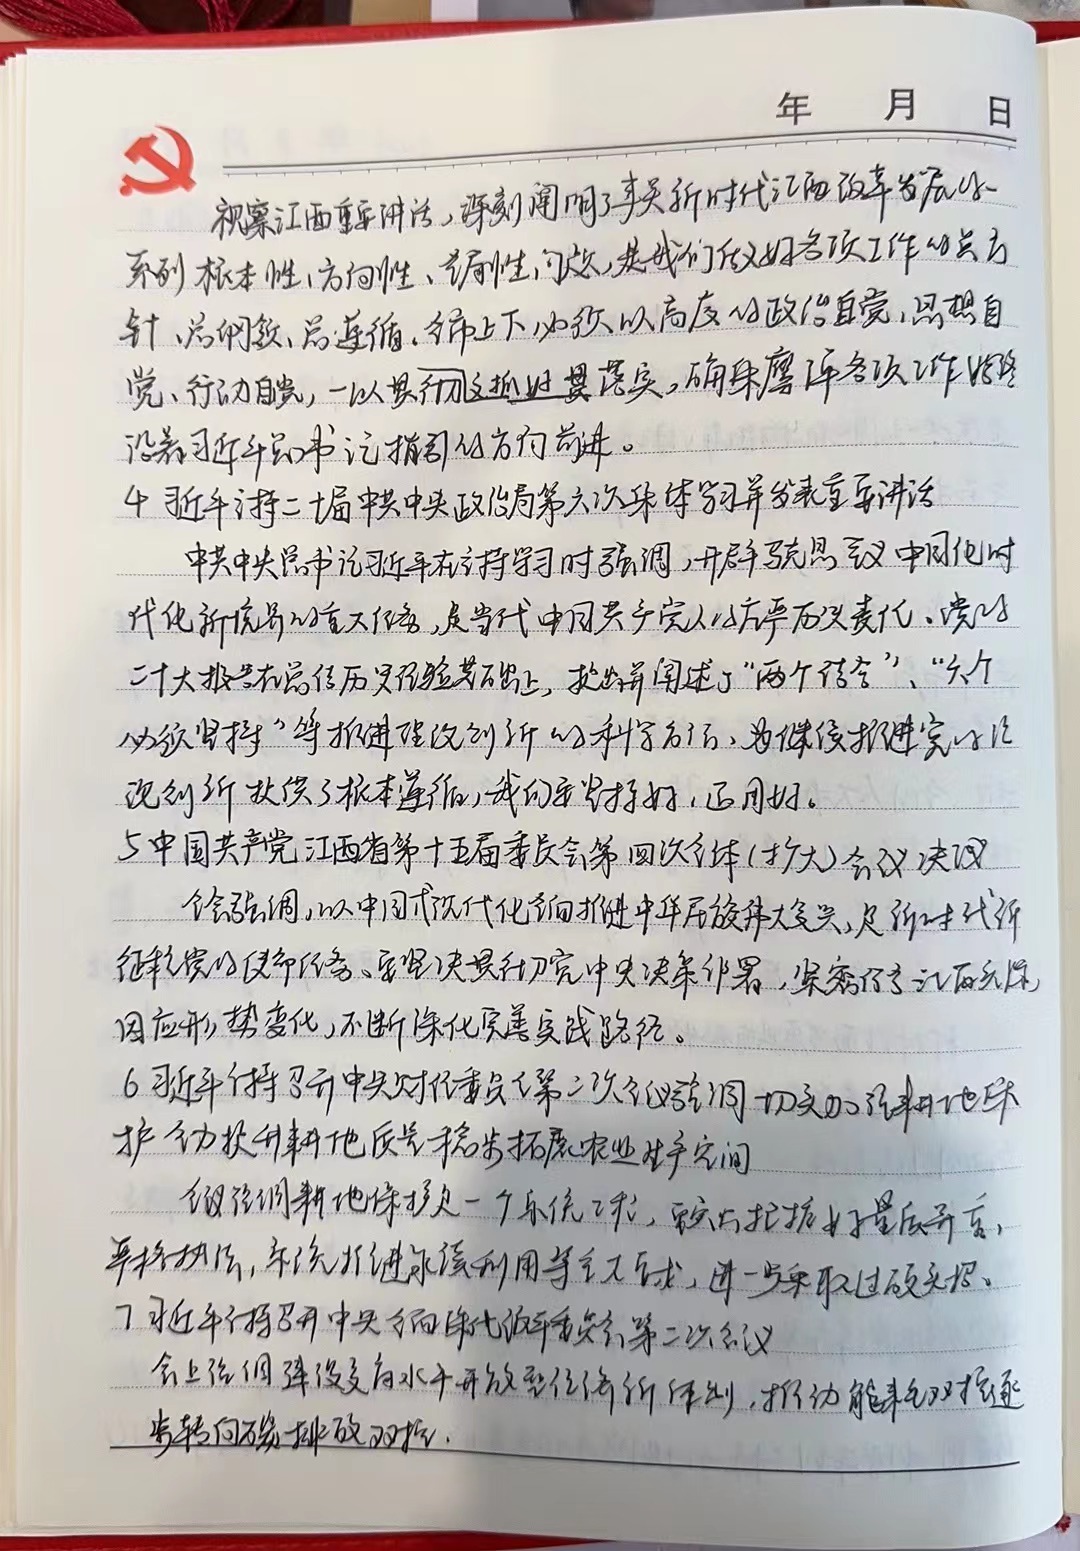 年 月 日
视察江西重要讲话，深刻阐明了事关新时代江西改革发展的一
系列根本性、方向性、全局性问题，是我们做好各项工作的总方
针、总纲领、总遵循。全市上下必须以高度的政治自觉、思想自
觉、行动自觉，一以贯 落实，确保鹰潭各项工作始终
沿着习近平总书记指引的方向前进。
4 习近平主持二十届中共中央政治局第六次集体学习并发表重要讲话
中共中央总书记习近平在主持学习时强调，开辟马克思主义中国化时
代化新境界的重大任务，是当代中国共产党人的庄严历史责任、党的
二十大报告在总结历史经验基础上，提出并阐述了“两个结合”、“六个
必须坚持”等推进理论创新的科学方法、为继续推进党的理
论创新提供了根本遵循，我们要坚持好，运用好。
5 中国共产党江西省第十五届委员会第四次全体（扩大）会议决议
全会强调，以中国式现代化全面推进中华民族伟大复兴，是新时代新
征程党的使命任务、要坚决贯彻党中央决策部署，紧密结合江西实际，
因应形势变化，不断深化完善实践路径。
6 习近平主持召开中央财经委员会第二次会议强调 切实加强耕地保
护 全力提升耕地质量 稳步拓展农业生产空间
会议强调耕地保护是一个系统工程，要突出把握好量质并重、
严格执法，系统推进永续利用等重大要求，进一步采取过硬实招。
7 习近平主持召开中央全面深化改革委员会第二次会议
会上强调建设更高水平开放型经济新体制，推动能耗双控逐
步转向碳排放双控.